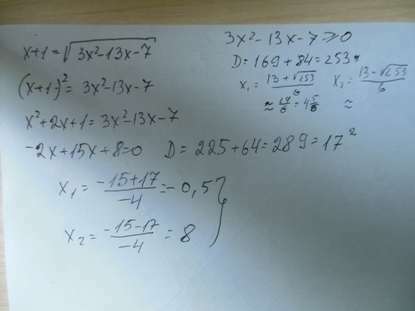 x+1=√3x²-13x-7
(x+1)²=3x²-13x-7
x²+2x+1=3x²-13x-7
-2x+15x+8=0 D=225+64=289=17²
x₁=(-15+17)/-4=-0,5
x₂=(-15-17)/-4=8
3x²-13x-7≥0
D=169+84=253
x₁=(13+√253)/6 x₂=(13-√253)/6